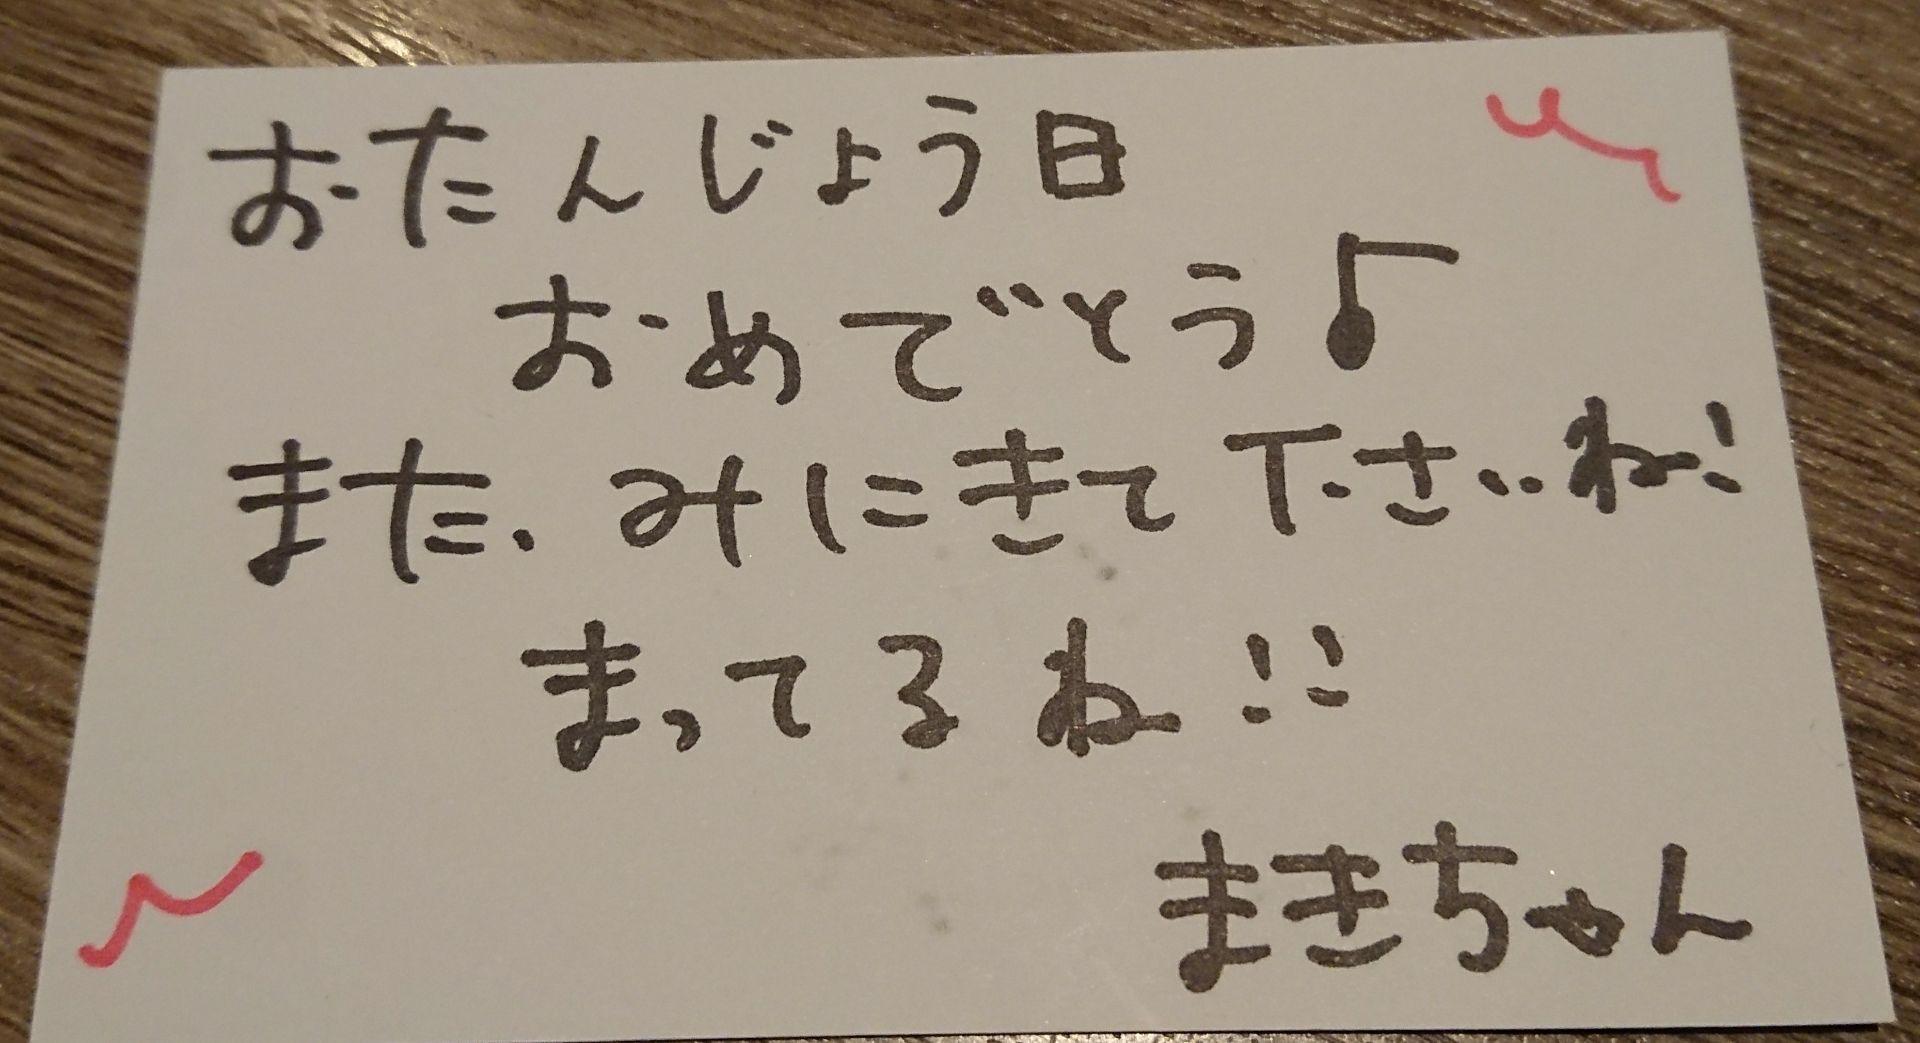 おたんじょう日
おめでとう♪
また、みにきて下さいね!
まってるね!!
まきちゃん